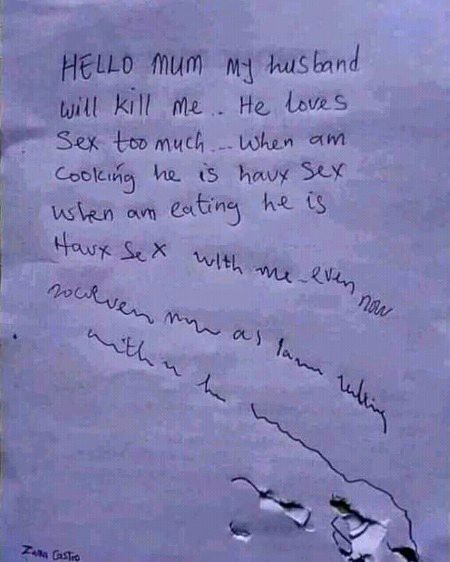 HELLO MUM MY husband
will kill me.. He loves
Sex too much... when am
Cooking he is havx Sex
when am eating he is
Havx Sex with me - even now
now as I am
with
Zana Castro